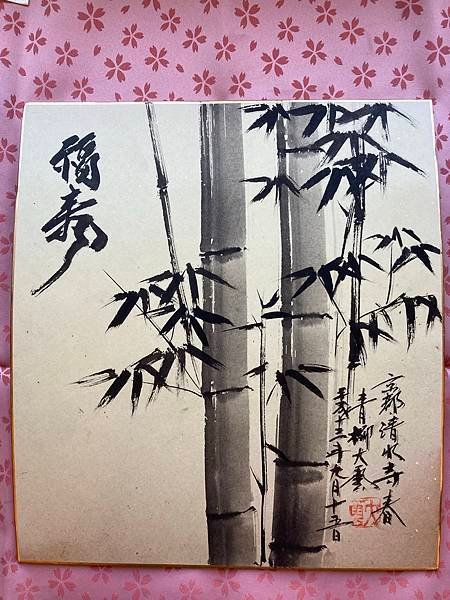 福寿
京都清水寺春
青柳大藝
平成十三年九月十五日